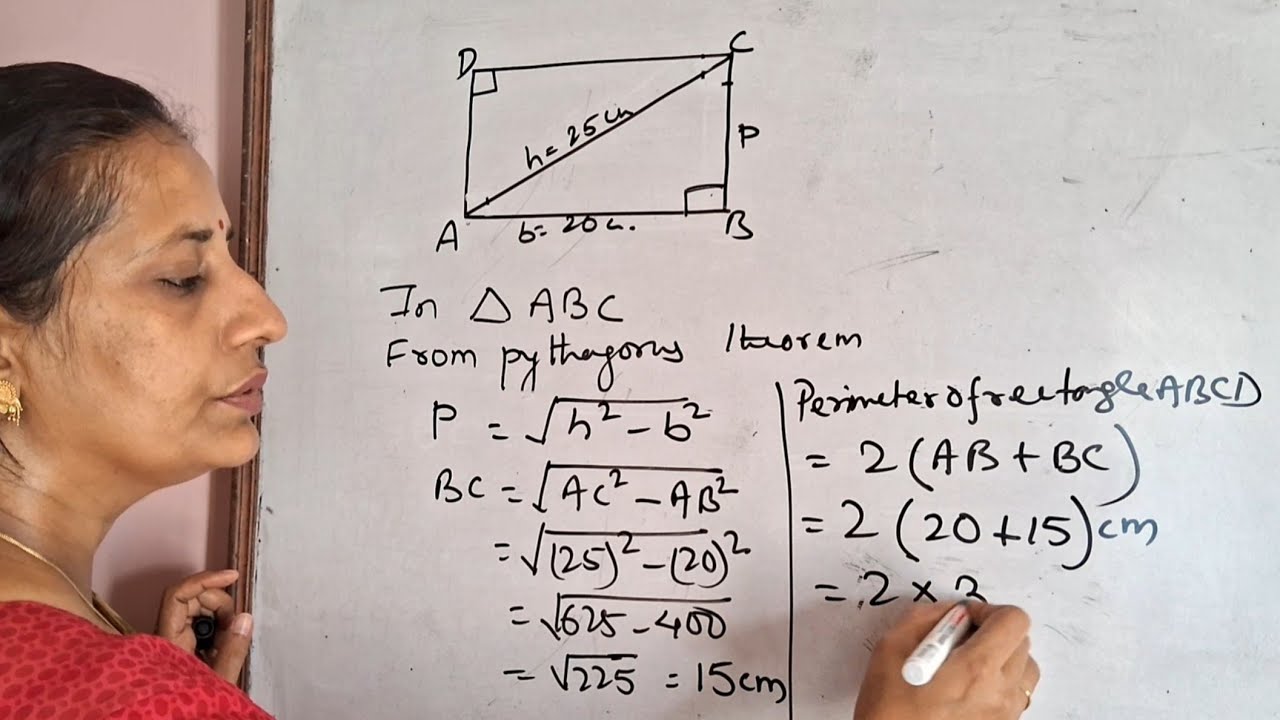 D
C
h = 25 cm
P
A
b = 20 c.
B
In △ ABC
From pythagorus theorem
P = √h² - b²
BC = √AC² - AB²
= √(25)² - (20)²
= √625 - 400
= √225 = 15cm
Perimeter of rectangle ABCD
= 2 (AB + BC)
= 2 (20 + 15) cm
= 2 × 3